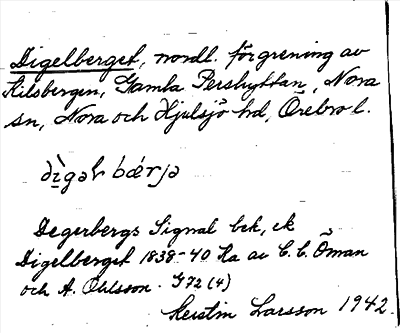 Digelberget, nordl. förgrening av
Kilsbergen, Gamla Pershyttan, Nora
sn, Nora och Hjulsjö hd, Örebro l.
dìgəḷbǽrjə
Degerbergs Signal bek, ek
Digelberget 1838-40 Ka av C.C. Öman
och A. Ohlsson. G72 (4)
Kerstin Larsson 1942.